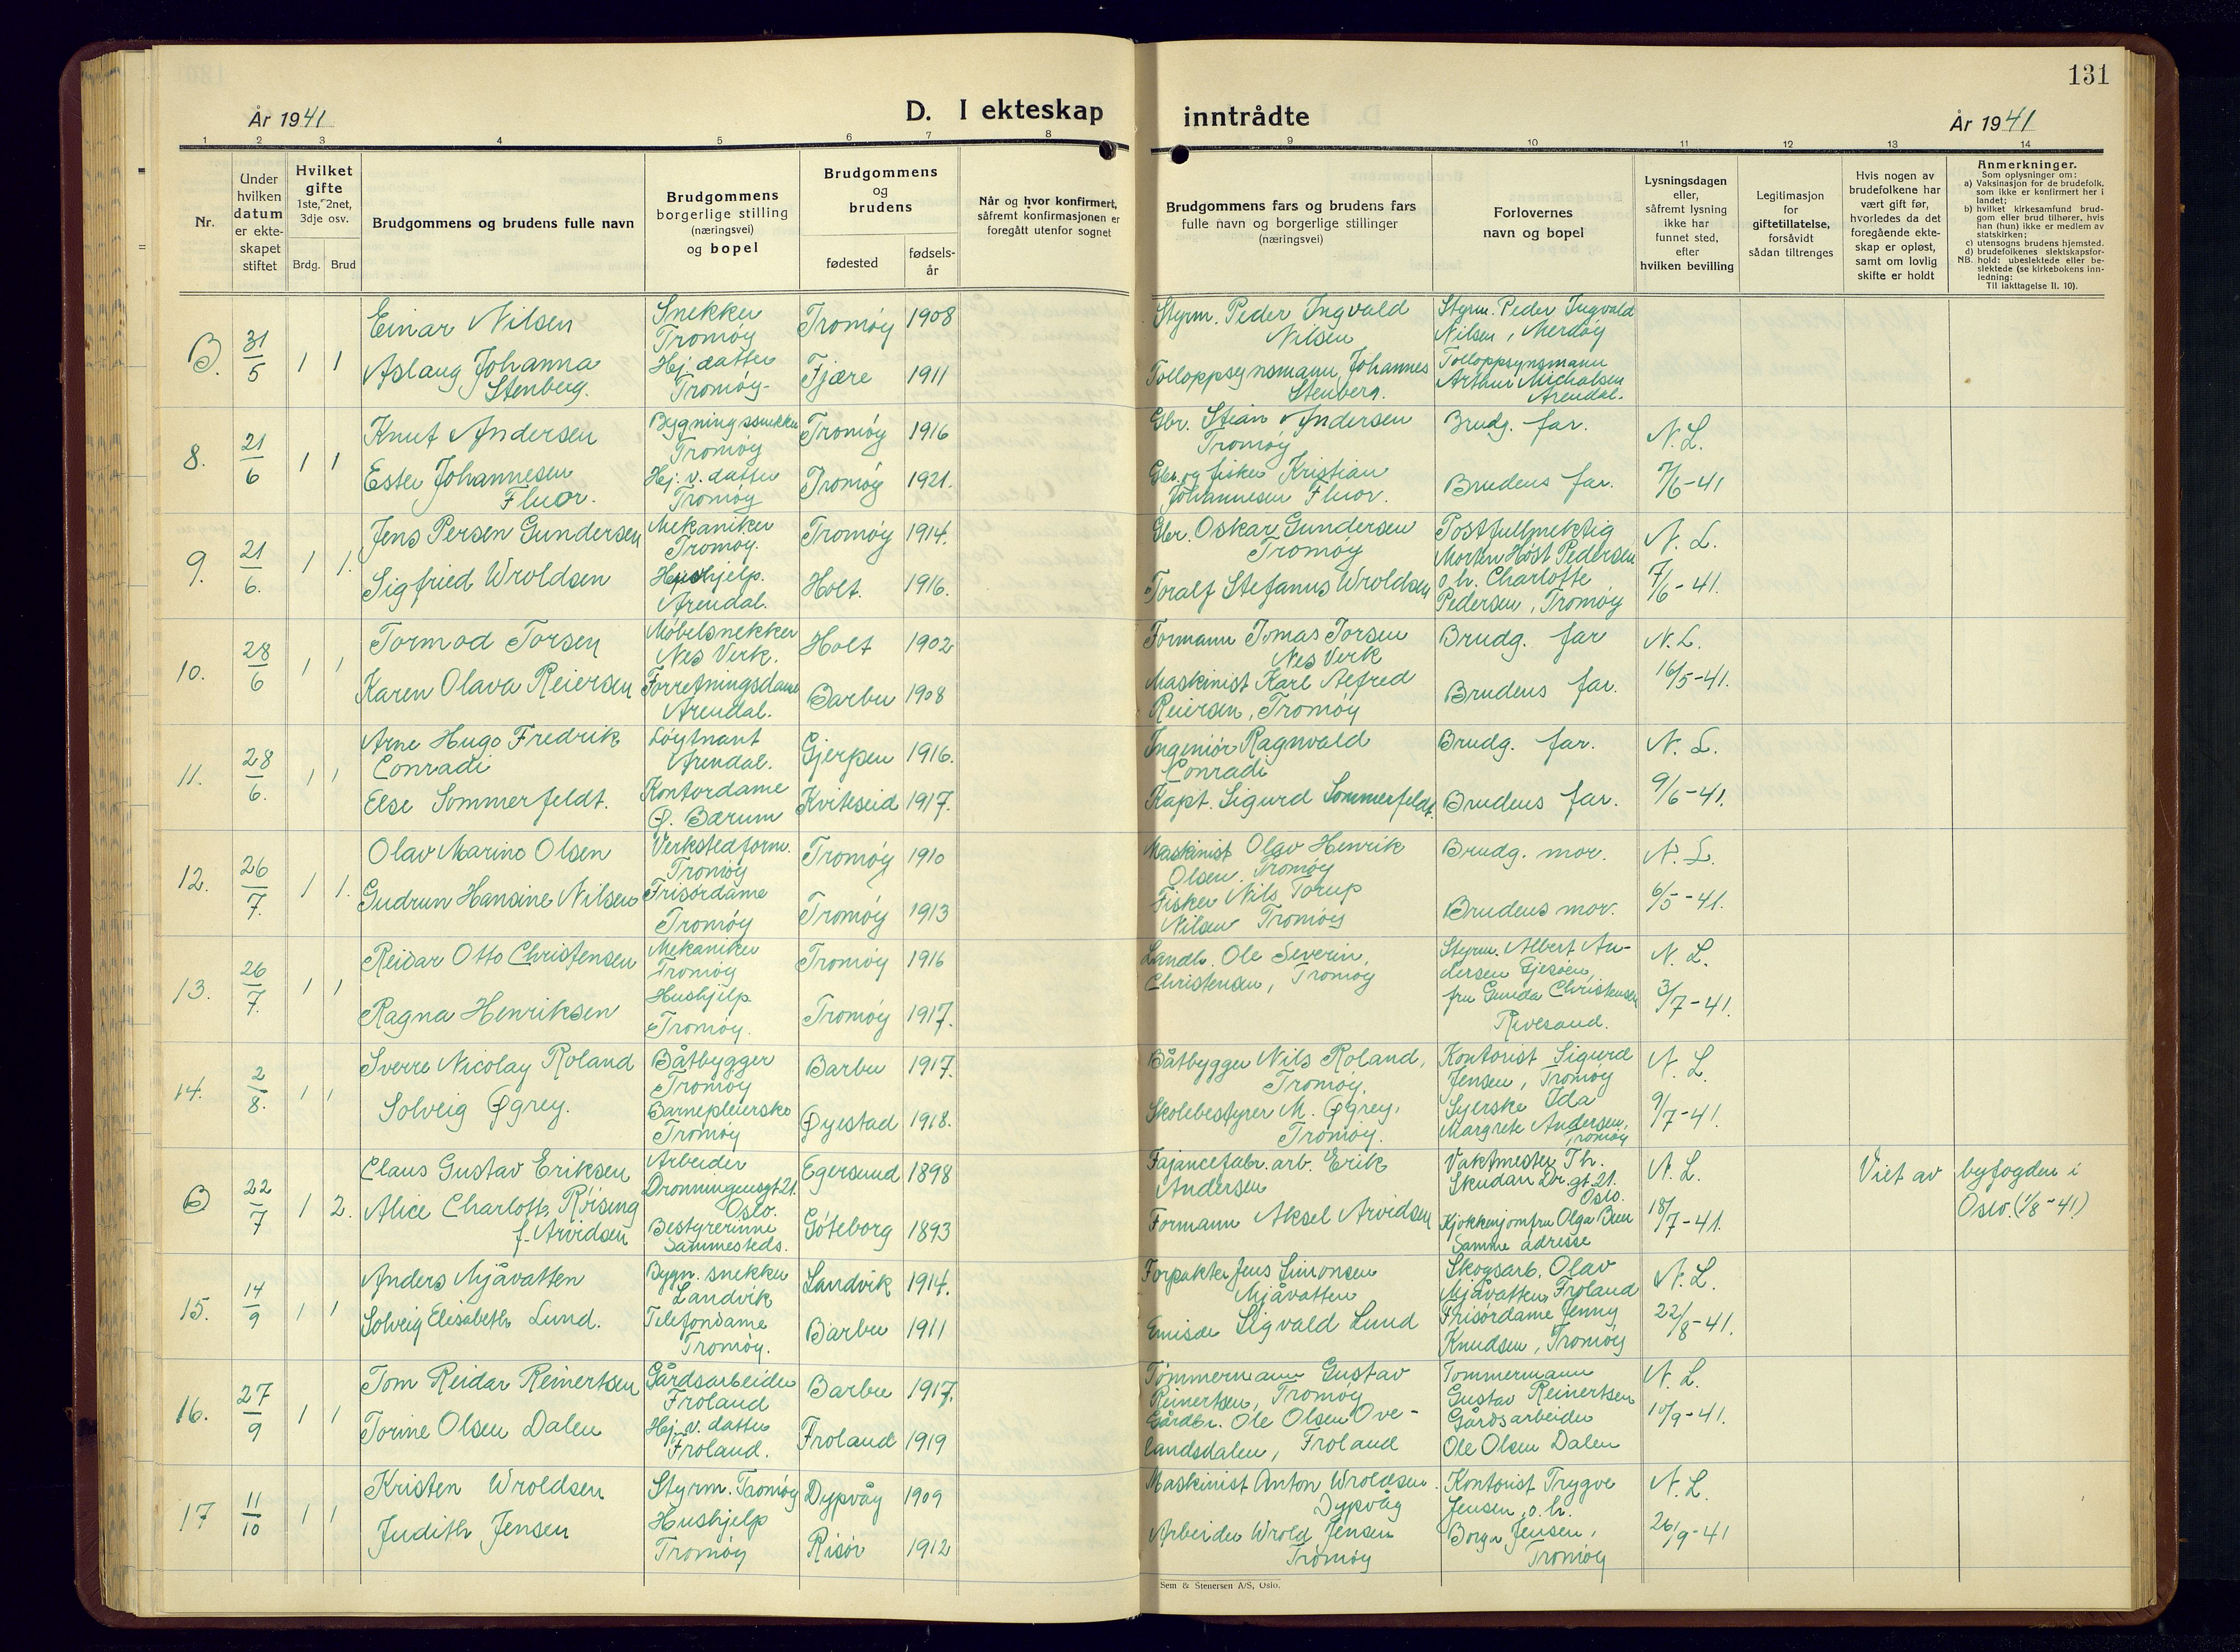 131
År 1941
D. I ekteskap inntrådte
År 1941
1 2 3 4 5 6 7 8 9 10 11 12 13 14
Nr.
Under
hvilken
datum
er ekte-
skapet
stiftet
Hvilket
gifte
1ste, 2net,
3dje osv.
Brdg. Brud
Brudgommens og brudens fulle navn
Brudgommens
borgerlige stilling
(næringsvei)
og bopel
Brudgommens
og
brudens
fødested
fødsels-
år
Når og hvor konfirmert,
såfremt konfirmasjonen er
foregått utenfor sognet
Brudgommens fars og brudens fars
fulle navn og borgerlige stillinger
(næringsvei)
Forlovernes
navn og bopel
Lysningsdagen
eller,
såfremt lysning
ikke har
funnet sted,
efter
hvilken bevilling
Legitimasjon
for
giftetillatelse,
forsåvidt
sådan tiltrenges
Hvis nogen av
brudefolkene har
vært gift før,
hvorledes da det
foregående ekte-
skap er opløst,
samt om lovlig
skifte er holdt
Anmerkninger.
Som oplysninger om:
a) Vaksinasjon for de brudefolk,
som ikke er konfirmert her i
landet;
b) hvilket kirkesamfund brud-
gom eller brud tilhører, hvis
han (hun) ikke er medlem av
statskirken;
c) utensogns brudens hjemsted.
d) brudefolkenes slektskapsfor-
hold: ubeslektede eller be-
slektede (se kirkebokens inn-
ledning:
NB.
Til iakttagelse II. 10).
B. 31/5 1 1
Einar Nilsen
Aslaug Johanna
Stenberg.
Snekker
Tromøy
Hj. datter
Tromøy-
Tromøy 1908
Fjære 1911
Styrm. Peder Ingvald
Nilsen
Tolloppsynsmann Johannes
Stenberg.
Styrm. Peder Ingvald
Nilsen, Merdøy
Tolloppsynsmann
Arthur Michalsen
Arendal.
8. 21/6 1 1
Knut Andersen
Ester Johannesen
Fluor.
Bygningssnekker
Tromøy
Hj. v. datter
Tromøy
Tromøy 1916
Tromøy 1921.
Gbr. Stian Andersen
Tromøy
Gbr. og fisker Kristian
Johannesen Fluor.
Brudg. far.
Brudens far.
N. L.
7/6-41
9. 21/6. 1 1.
Jens Persen Gundersen
Sigfried Wroldsen
Mekaniker
Tromøy.
Hushjelp.
Arendal.
Tromøy 1914.
Holt. 1916.
Gbr. Oskar Gundersen
Tromøy
Toralf Stefanus Wroldsen
Postfullmektig
Morten Høst Pedersen
o. h. Charlotte
Pedersen, Tromøy
N. L.
7/6-41.
10. 28/6 1 1
Tormod Torsen
Karen Olava Reiersen
Møbelsnekker
Nes Verk.
Forretningsdame
Arendal.
Holt 1902
Barbu 1908
Formann Tomas Torsen
Nes Verk
Maskinist Karl Alfred
Reiersen, Tromøy
Brudg. far
Brudens far.
N. L.
16/5-41.
11. 28/6. 1 1
Arne Hugo Fredrik
Conradi
Else Sommerfeldt.
Løytnant
Arendal.
Kontordame
Ø. Bærum
Gjerpen 1916.
Kviteseid 1917.
Ingeniør Ragnvald
Conradi
Kapt. Sigurd Sommerfeldt.
Brudg. far.
Brudens far.
N. L.
9/6-41.
12. 26/7. 1 1.
Olav Marino Olsen
Gudrun Hansine Nilsen
Verkstedform.
Tromøy
Frisørdame
Tromøy
Tromøy 1910
Tromøy 1913
Maskinist Olav Henrik
Olsen. Tromøy
Fisker Nils Torup
Nilsen Tromøy
Brudg. mor.
Brudens mor.
N. L.
6/5-41.
13. 26/7. 1 1
Reidar Otto Christensen
Ragna Henriksen
Mekaniker
Tromøy
Hushjelp.
Tromøy.
Tromøy 1916
Tromøy 1917.
Landb. Ole Severin,
Christensen, Tromøy
Styrm. Albert An-
dersen Gjesøen,
fru Gunda Christensen
Rivesand.
N. L.
3/7-41.
14. 2/8. 1 1
Sverre Nicolay Roland
Solveig Øgrey.
Båtbygger
Tromøy
Barnepleierske
Tromøy
Barbu 1917.
Øyestad 1918.
Båtbygger Nils Roland,
Tromøy.
Skolebestyrer M. Øgrey,
Tromøy.
Kontorist Sigurd
Jensen, Tromøy
Syerske Ida
Margrete Andersen,
Tromøy
N. L.
9/7-41.
B 22/7 1 2.
Claus Gustav Eriksen
Alice Charlotte Røising
f. Arvidsen
Arbeider
Dronningensgt 21.
Oslo.
Bestyrerinne
Sammesteds.
Egersund 1898
Göteborg 1893
Fajancefabr. arb. Erik
Andersen
Formann Aksel Arvidsen
Vaktmester Th.
Skudan Dr. gt. 21.
Oslo.
Kjøkkenjomfru Olga Bren
Samme adresse
N. L.
18/7-41.
Viet av byfogden i
Oslo. (1/8-41)
15. 14/9 1 1
Anders Mjåvatten
Solveig Elisabeth Lund.
Bygn. snekker
Landvik
Telefondame
Tromøy.
Landvik 1914.
Barbu 1911
Forpakter Jens Simonsen
Mjåvatten
Emisær Sigvald Lund
Skogsarb. Olav
Mjåvatten, Froland
Frisørdame Jenny
Knudsen, Tromøy
N. L.
22/8-41.
16. 27/9 1 1
Tom Reidar Reinertsen
Torine Olsen Dalen
Gårdsarbeider
Froland
Hj. v. datter
Froland.
Barbu 1917.
Froland 1919
Tømmermann Gustav
Reinertsen, Tromøy
Gårdbr. Ole Olsen Ove-
landsdalen, Froland
Tømmermann
Gustav Reinertsen
Gårdsarbeider
Ole Olsen Dalen
N. L.
10/9-41.
17 11/10 1 1
Kristen Wroldsen
Judith Jensen
Styrm. Tromøy
Hushjelp
Tromøy
Dypvåg 1909
Risør 1912
Maskinist Anton Wroldsen.
Dypvåg
Arbeider Wrold Jensen
Tromøy
Kontorist Trygve
Jensen, o. h.
Borgn Jensen,
Tromøy
N. L.
26/9-41
Sem & Stenersen A/S, Oslo.